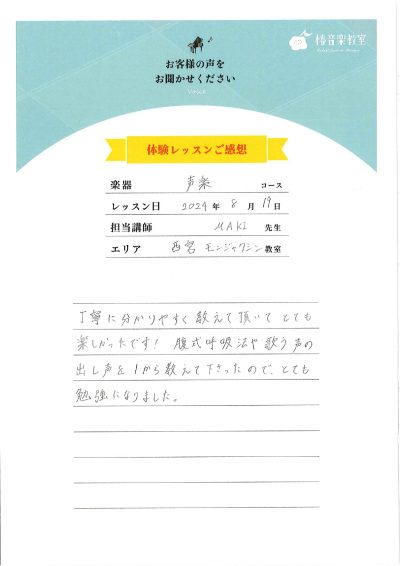 椿音楽教室
お客様の声を
お聞かせください
体験レッスンご感想
楽器 声楽 コース
レッスン日 2024年 8月 19日
担当講師 MAKI 先生
エリア 西宮 モンジャクシン教室
丁寧に分かりやすく教えて頂いて とても
楽しかったです! 腹式呼吸法や歌う声の
出し声を1から教えて下さったので、とても
勉強になりました。